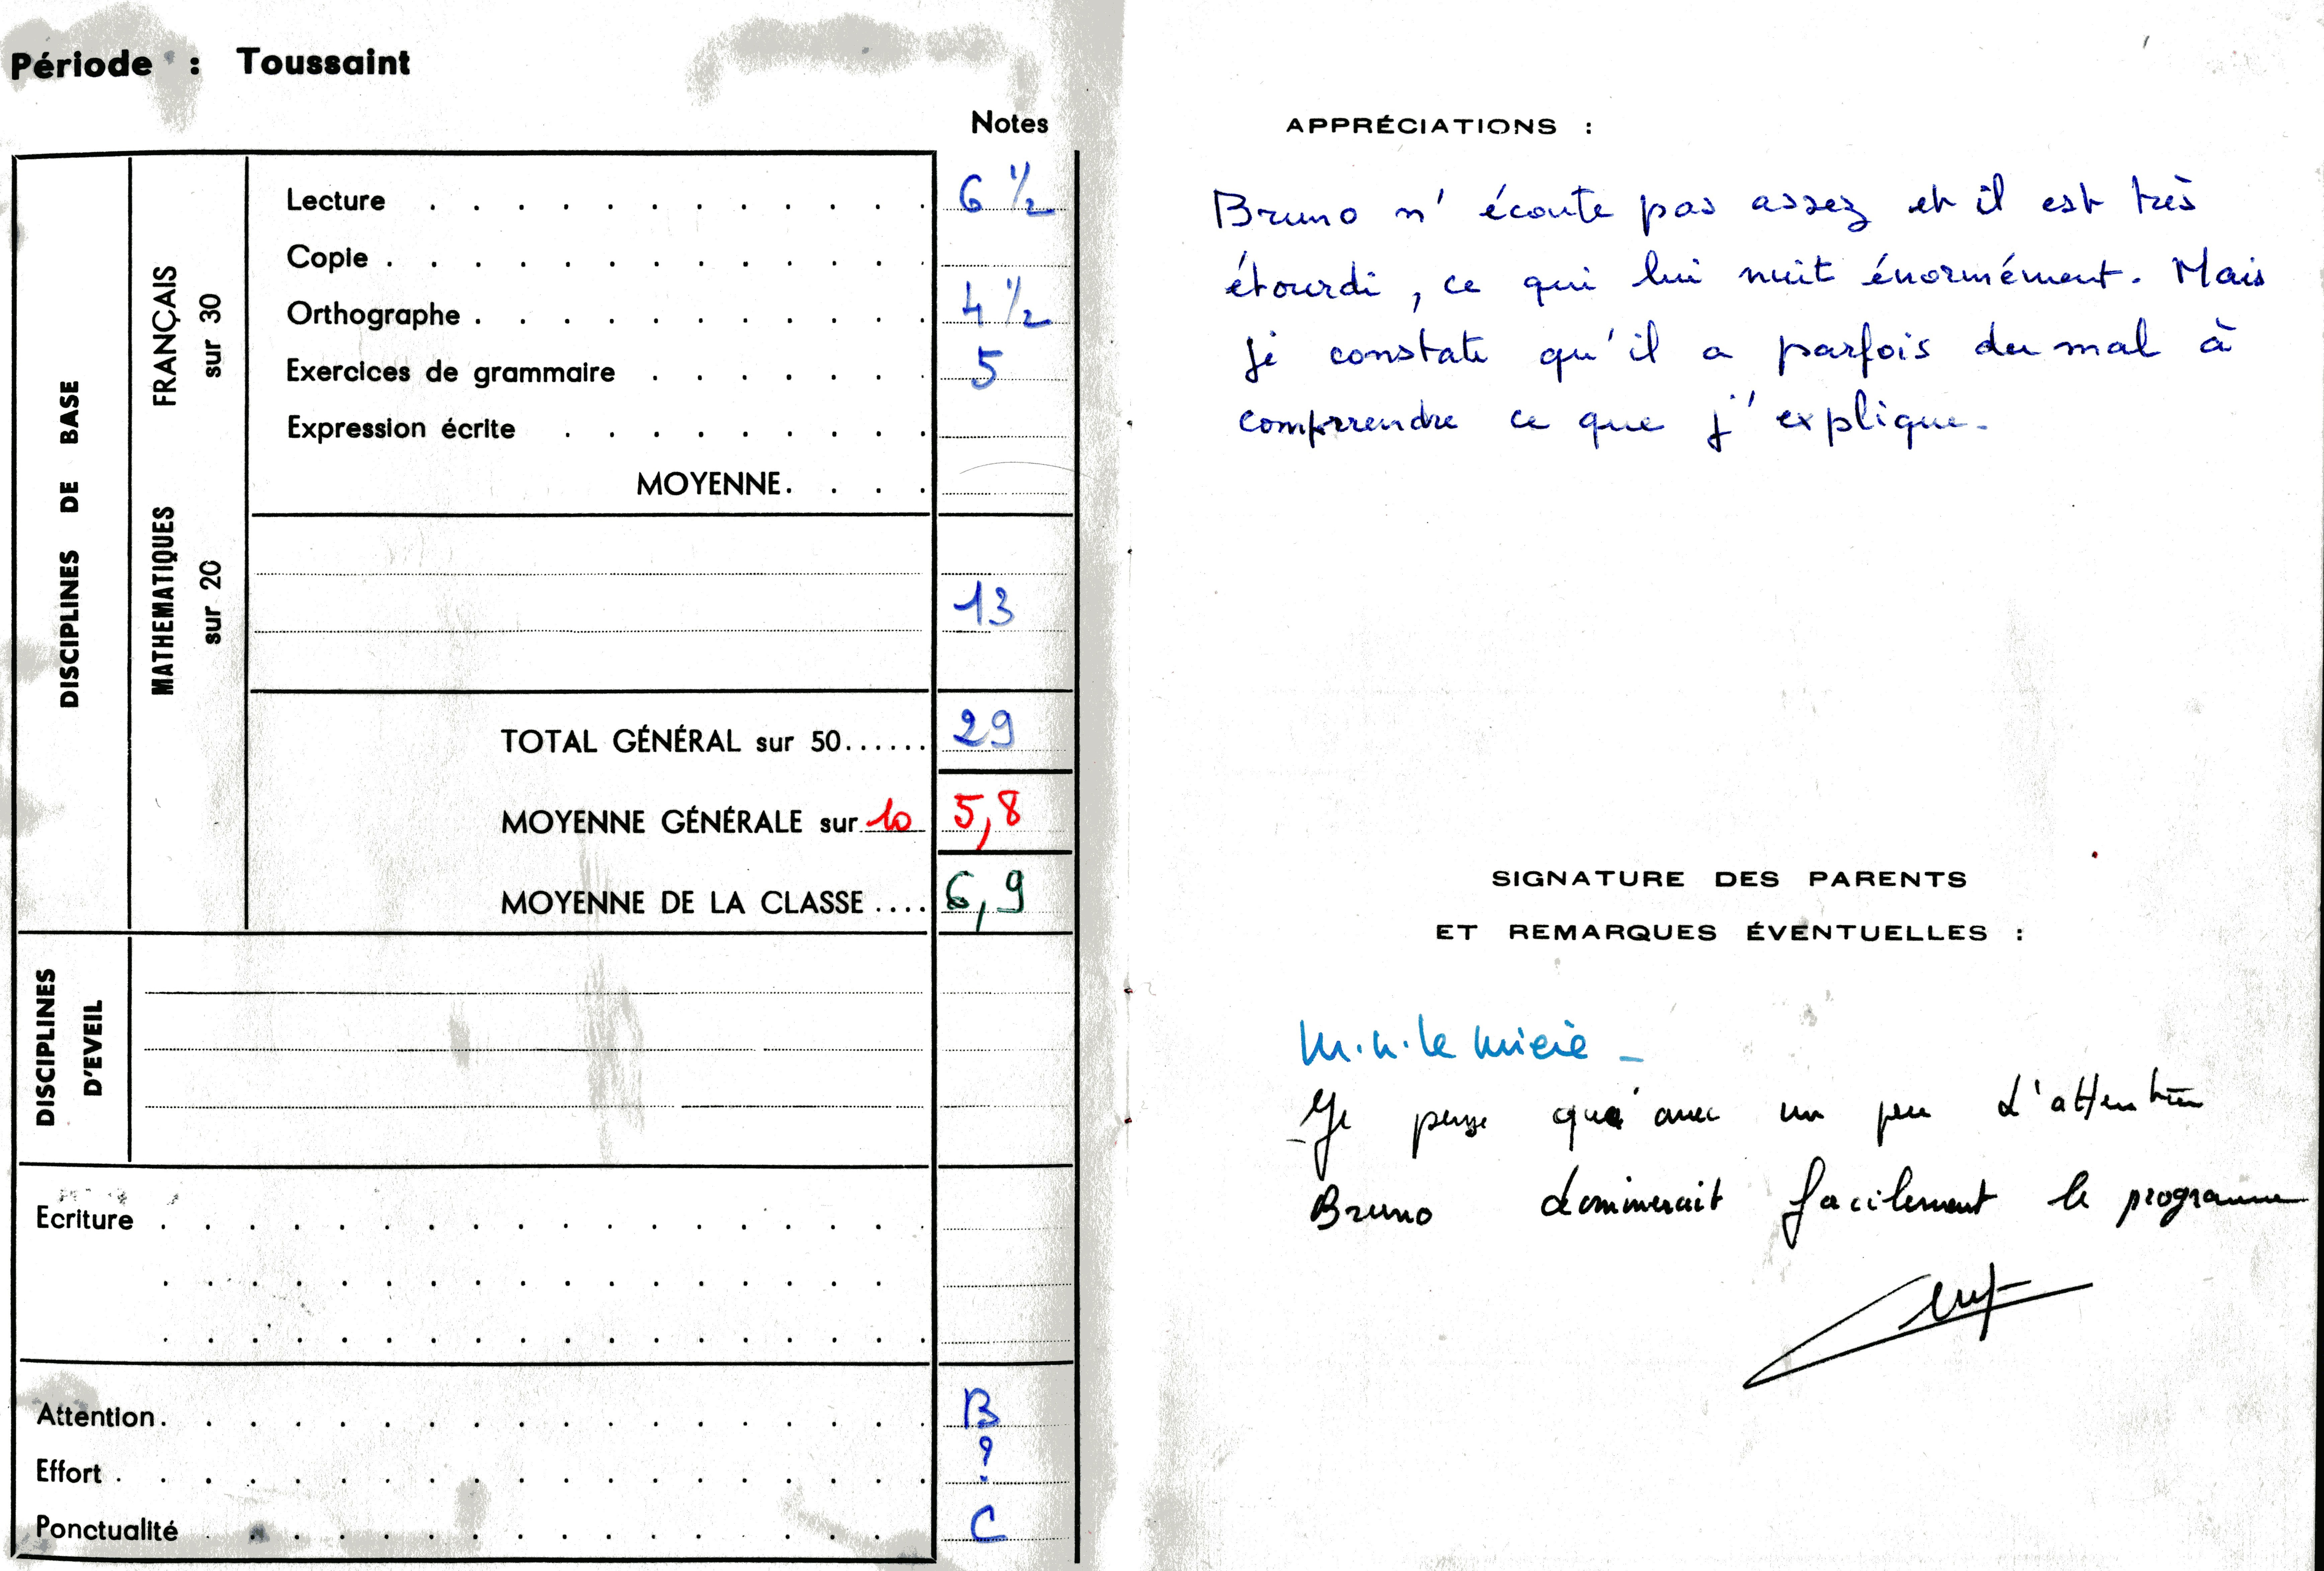 Période : Toussaint
Notes
DISCIPLINES DE BASE
FRANÇAIS
sur 30
Lecture 6 1/2
Copie
Orthographe 4 1/2
Exercices de grammaire 5
Expression écrite
MOYENNE
MATHEMATIQUES
sur 20
13
TOTAL GÉNÉRAL sur 50 29
MOYENNE GÉNÉRALE sur 10 5,8
MOYENNE DE LA CLASSE 6,9
DISCIPLINES
D'EVEIL
Ecriture
Attention B
Effort ?
Ponctualité C
APPRÉCIATIONS :
Bruno n'écoute pas assez et il est très
étourdi, ce qui lui nuit énormément. Mais
je constate qu'il a parfois du mal à
comprendre ce que j'explique.
SIGNATURE DES PARENTS
ET REMARQUES ÉVENTUELLES :
Je pense que avec un peu d'attention
Bruno dominerait facilement le programme